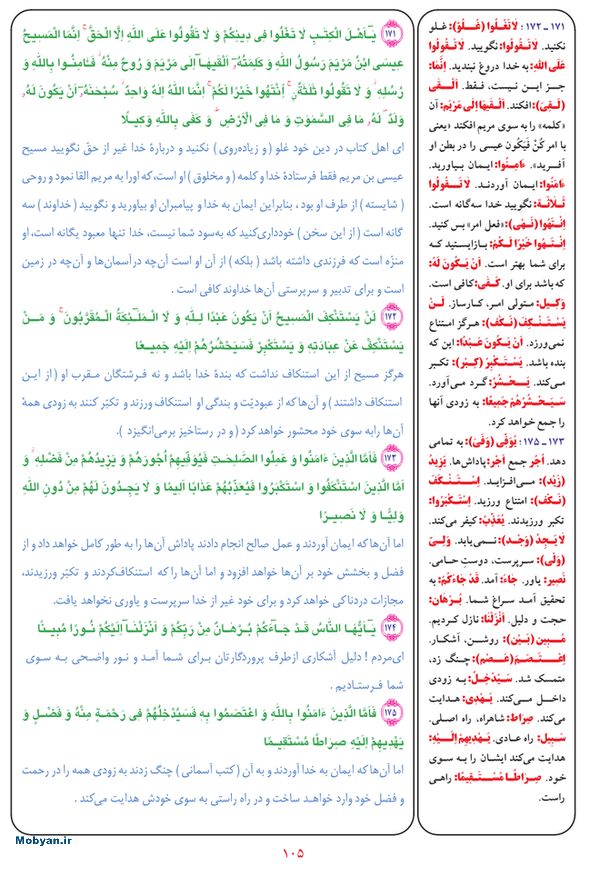 ۱۷۱ ـ ۱۷۲ : لَاتَغْلُوا (غُلُوّ): غلو
نکنید. لَاتَقُولُوا: نگویید. لَاتَقُولُوا
عَلَی اللهِ: به خدا دروغ نبندید. اِنَّمَا:
جز این نیست، فقط. اَلْـقَـٰی
(لَـقِیَ): افکند. اَلْقَـیٰهَا اِلَیٰ مَرْیَمَ: آن
«کلمه» را به سوی مریم افکند «یعنی
با امر کُنْ فَیَکُون عیسی را در بطن او
آفرید». ءَامِنُوا: ایمان بیاورید.
ءَامَنُوا: ایمان آوردند. لَاتَقُولُوا
ثَـلَاثَةٌ: نگویید خدا سه‌گانه است.
اِنْتَهُوا (نَـهْی): «فعل امر» بس کنید.
اِنْتَـهُوا خَیْرًا لَـکُمْ: بازایستید که
برای شما بهتر است. اَنْ یَکُونَ لَهُ:
که باشد برای او. کَـفَیٰ: کافی است.
وَکِیل: متولی امر، کارساز. لَنْ
یَسْتَنْکِفَ (نَکَفَ): هرگز امتناع
نمی‌ورزد. اَنْ یَکُونَ عَـبْدًا: این که
بنده باشد. یَسْتَکْبِرْ (کِبْر): تکبر
می‌کند. یَـحْشُرُ: گرد می‌آورد.
سَـیَـحْشُرُهُمْ جَمِیعًا: به زودی آنها
را جمع خواهد کرد.
۱۷۳ ـ ۱۷۵ : یُوَفِّی (وَفَیَ): به تمامی
دهد. اُجُور جمع اَجْر: پاداش‌ها. یَزِیدُ
(زَیْد): مـی‌افـزایـد. اِسْـتَـنْـکَـفَ
(نَکَفَ): امتناع ورزید. اِسْتَکْبَرُوا:
تکبر ورزیدند. یُعَذِّبُ: کیفر می‌کند.
لَایَجِدُ (وَجَدَ): نـمـی‌یابد. وَلِـیّ
(وَلْی): سرپرست، دوستِ حامی.
نَصِیر: یاور. جَاءَ: آمد. قَدْ جَاءَکُمْ: به
تحقیق آمد سراغ شما. بُـرْهَان:
حجت و دلیل. اَنْزَلْنَا: نازل کردیم.
مُـبِـین (بَیْن): روشـن، آشـکار.
اِعْـتَـصَـمَ (عَـصَمَ): چـنگ زد،
متمسک شد. سَیُدْخِلُ: به زودی
داخل می‌کند. یَـهْدِی: هدایت
می‌کند. صِرَاط: شاهراه، راه اصلی.
سَبِیل: راه عادی. یَـهْدِیهِمْ اِلَـیْهِ:
هدایت می‌کند ایشان را به سوی
خود. صِرَاطًا مُسْـتَـقِیمًا: راهی
راست.
۱۷۱ یَـٰٓاَهْلَ الْکِتَـٰبِ لَا تَغْلُوا فِی دِینِکُمْ وَ لَا تَقُولُوا عَلَی اللهِ اِلَّا الْحَقَّ ۚ اِنَّمَا الْمَسِیحُ
عِیسَی ابْنُ مَرْیَمَ رَسُولُ اللهِ وَ کَلِمَتُهُۥٓ اَلْقَیٰهَآ اِلَیٰ مَرْیَمَ وَ رُوحٌ مِنْهُ ۖ فَـَٔامِنُوا بِاللهِ وَ
رُسُلِهِ ۖ وَ لَا تَقُولُوا ثَلَـٰثَةٌ ۚ اِنْتَهُوا خَیْرًا لَکُمْ ۚ اِنَّمَا اللهُ اِلَـٰهٌ وَاحِدٌ ۖ سُبْحَـٰنَهُۥٓ اَنْ یَکُونَ لَهُۥ
وَلَدٌ ۘ لَهُۥ مَا فِی السَّمَـٰوَٰتِ وَ مَا فِی الْاَرْضِ ۗ وَ کَفَیٰ بِاللهِ وَکِیلًا
ای اهل کتاب در دین خود غلو ( و زیاده‌روی ) نکنید و دربارهٔ خدا غیر از حق نگویید مسیح
عیسی بن مریم فقط فرستادهٔ خدا و کلمه ( و مخلوق ) او است، که اورا به مریم القا نمود و روحی
( شایسته ) از طرف او بود ، بنابراین ایمان به خدا و پیامبران او بیاورید و نگویید ( خداوند ) سه
گانه است ( از این سخن ) خودداری‌کنید که به‌سود شما نیست، خدا تنها معبود یگانه است، او
منزّه است که فرزندی داشته باشد ( بلکه ) از آن او است آن‌چه درآسمان‌ها و آن‌چه در زمین
است و برای تدبیر و سرپرستی آن‌ها خداوند کافی است .
۱۷۲ لَنْ یَسْتَنْکِفَ الْمَسِیحُ اَنْ یَکُونَ عَبْدًا لِلّٰهِ وَ لَا الْمَلَـٰٓئِکَةُ الْمُقَرَّبُونَ ۚ وَ مَـنْ
یَسْتَنْکِفْ عَنْ عِبَادَتِهِ وَ یَسْتَکْبِرْ فَسَیَحْشُرُهُمْ اِلَیْهِ جَمِیـعًا
هرگز مسیح از این استنکاف نداشت که بندهٔ خدا باشد و نه فرشتگان مـقرب او ( از ایـن
استنکاف داشتند ) و آن‌ها که از عبودیّت و بندگی او استنکاف ورزند و تکبّر کنند به زودی همهٔ
آن‌ها رابه سوی خود محشور خواهد کرد ( و در رستاخیز برمی‌انگیزد ) .
۱۷۳ فَاَمَّا الَّذِینَ ءَامَنُوا وَ عَمِلُوا الصَّـٰلِحَـٰتِ فَیُوَفِّیهِمْ اُجُورَهُمْ وَ یَزِیدُهُمْ مِنْ فَضْلِهِ ۖ وَ
اَمَّا الَّذِینَ اسْتَنْکَفُوا وَ اسْتَکْبَرُوا فَیُعَذِّبُهُمْ عَذَابًا اَلِیمًا وَ لَا یَجِـدُونَ لَهُمْ مِنْ دُونِ اللهِ
وَلِیًّـا وَ لَا نَصِیـرًا
اما آن‌ها که ایمان آوردند و عمل صالح انجام دادند پاداش آن‌ها را به طور کامل خواهد داد و از
فضل و بخشش خود بر آن‌ها خواهد افزود و اما آن‌ها را که استنکاف‌کردند و تکبّر ورزیدند،
مجازات دردناکی خواهد کرد و برای خود غیر از خدا سرپرست و یاوری نخواهد یافت.
۱۷۴ یَـٰٓاَیُّهَا النَّاسُ قَـدْ جَـآءَکُمْ بُـرْهَـٰنٌ مِنْ رَبِّکُمْ وَ اَنْزَلْنَـآ اِلَیْکُمْ نُـورًا مُبِینًـا
ای‌مردم ! دلیل آشکاری ازطرف پروردگارتان بـرای شـما آمـد و نـور واضـحی بـه سـوی
شما فـرسـتادیـم .
۱۷۵ فَاَمَّا الَّذِینَ ءَامَنُوا بِاللهِ وَ اعْتَصَمُوا بِهِ فَسَیُدْخِلُهُمْ فِی رَحْمَةٍ مِنْهُ وَ فَضْلٍ وَ
یَهْدِیهِمْ اِلَیْهِ صِرَاطًا مُسْتَقِیمًا
اما آن‌ها که ایمان به خدا آوردند و به آن ( کتب آسمانی ) چنگ زدند به زودی همه را در رحمت
و فضل خود وارد خواهـد ساخت و در راه راستی به سوی خودش هدایت می‌کند .
۱۰۵
Mobyan.ir